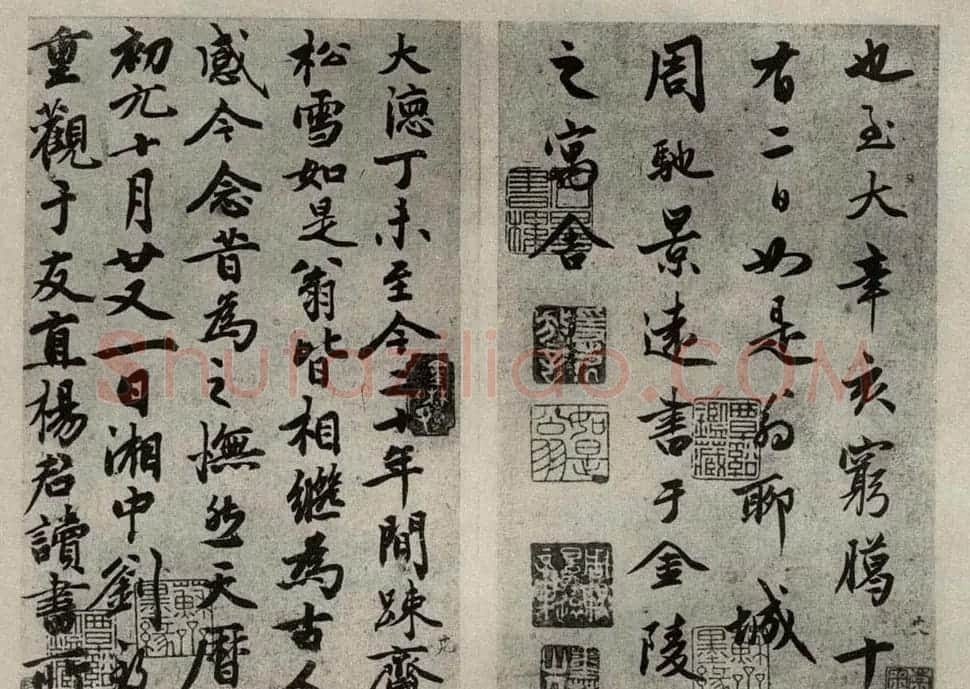 也至大辛亥窮臈十
有二日如是翁聊城
周馳景遠書于金陵
之寓舍
大德丁未至今二十年間踈齋
松雪如是翁皆相繼為古人
感今念昔為之憮然天曆
初元十月廿又一日湘中劉
重觀于友直楊君讀書所
如是翁
Shufaziliao.COM